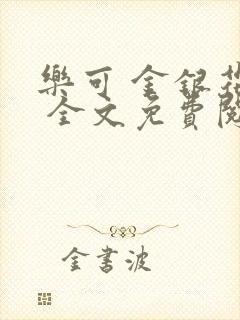 樂可 金銀花
全文免費閱
金書波